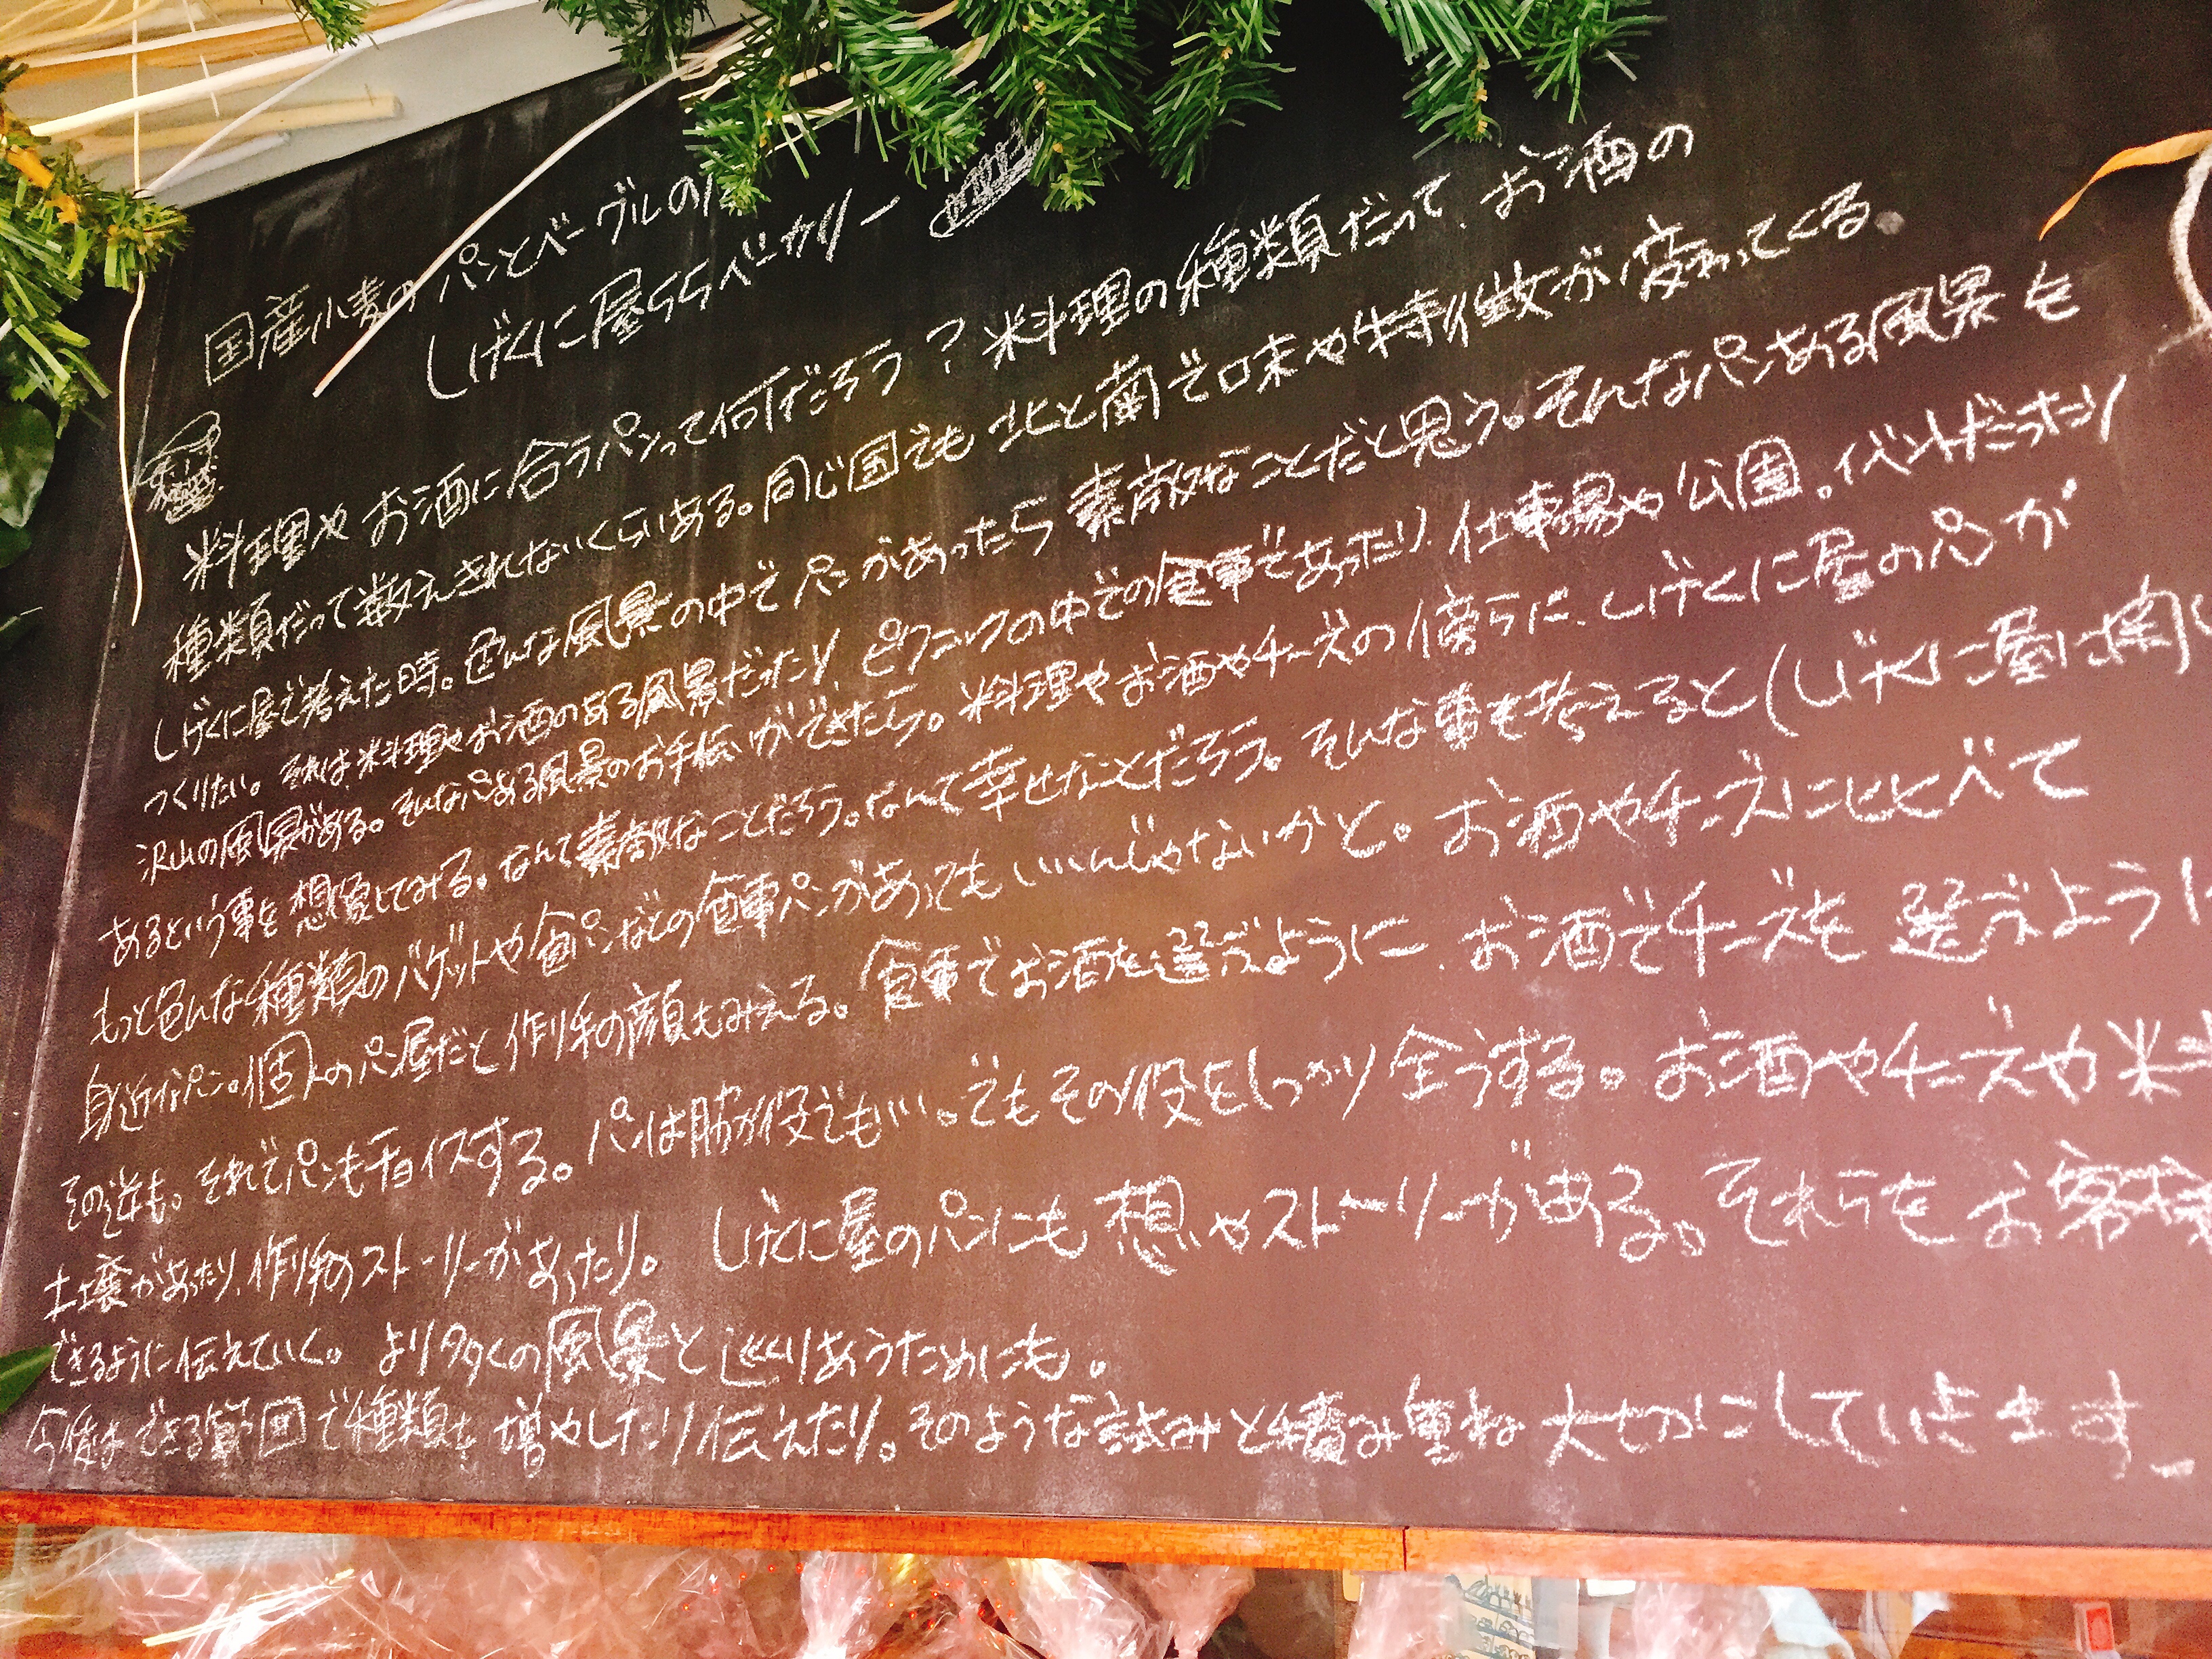 国産小麦のパンとベーグルの
しげくに屋55ベーカリー
料理やお酒に合うパンって何だろう？料理の種類だって、お酒の
種類だって数えきれないくらいある。同じ国でも北と南で味や特徴が変わってくる。
しげくに屋で考えた時。色んな風景の中でパンがあったら素敵なことだと思う。そんなパンある風景を
つくりたい。それは、料理やお酒のある風景だったり、ピクニックの中での食事であったり、仕事場や公園。イベントだったり
沢山の風景がある。そんなパンある風景のお手伝いができたら。料理やお酒やチーズの傍らに、しげくに屋のパンが
あるという事を想像してみる。なんて素敵なことだろう。なんて幸せなことだろう。そんな事を考えると(しげくに屋に
もっと色んな種類のバゲットや食パンなどの食事パンがあってもいいんじゃないかと。お酒やチーズにヒヒべて
身近なパン。個人のパン屋だと作り手の顔もみえる。食事でお酒を選ぶように、お酒でチーズを選ぶように
その逆も。それでパンもチョイスする。パンは脇役でもいい。でもその役をしっかり全うする。お酒やチーズや
土壌があったり、作り手のストーリーがあったり。しげくに屋のパンにも想いやストーリーがある。それらをお客様
できるように伝えていく。より多くの風景と巡りあうためにも。
今後はできる範囲で種類を増やしたり伝えたり。そのような試みと積み重ね大切にしていきます。